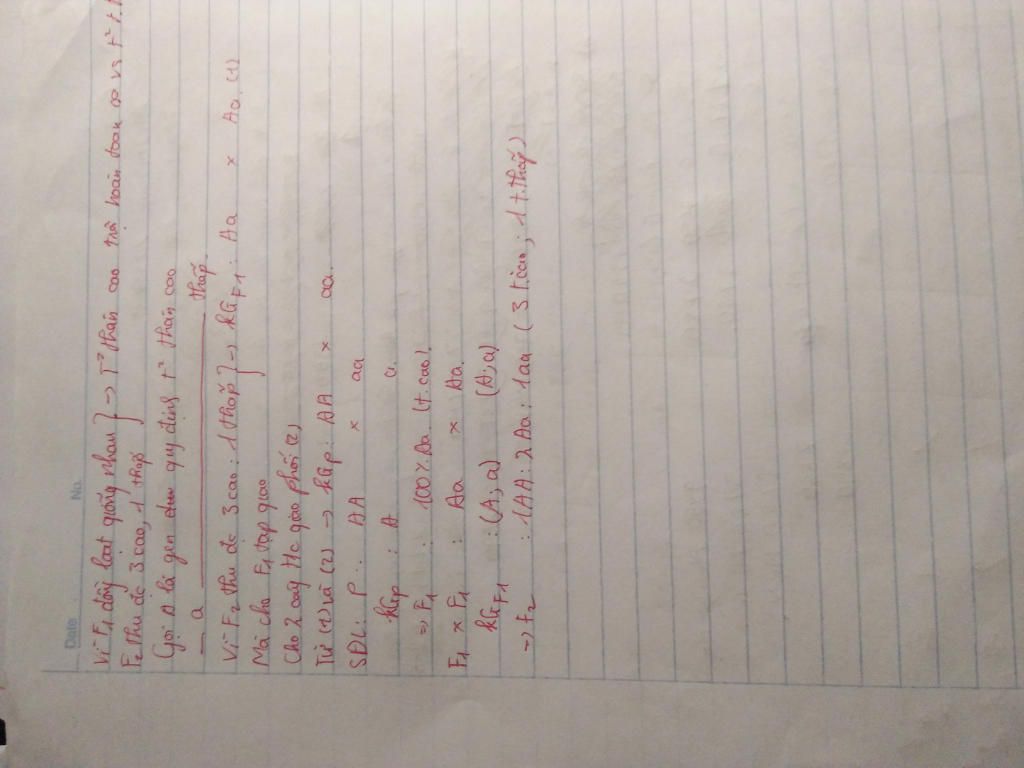 Date No.
Vì F1 đồng loạt giống nhau } -> T² thân cao trội hoàn toàn so vs t² t.
F2 thu đc 3 cao, 1 thấp
Gọi A là gen quy định t² thân cao
_ a _____________ thấp.
Vì F2 thu đc 3 cao : 1 thấp } -> kG F1 : Aa x Aa (1)
Mà cho F1 tạp giao
Cho 2 cây Hc giao phối (2)
Từ (1) và (2) -> kGp : AA x aa.
SĐL : P : AA x aa
kGp : A a.
=> F1 : 100% Aa (t.cao).
F1 x F1 : Aa x Aa
kG F1 : (A, a) (A, a)
-> F2 : 1AA : 2Aa : 1aa (3 t.cao ; 1 t.thấp)